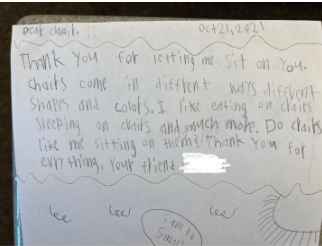 Dear chair, Oct 21, 2021
Thank You for letting me sit on You.
Chairs come in diffrent ways diffrent
shapes and colors. I like eating on chairs
sleeping on chairs and much more. Do chairs
like me sitting on them? Thank You for
evrything. Your friend
lee lee lee
i am to
Smart